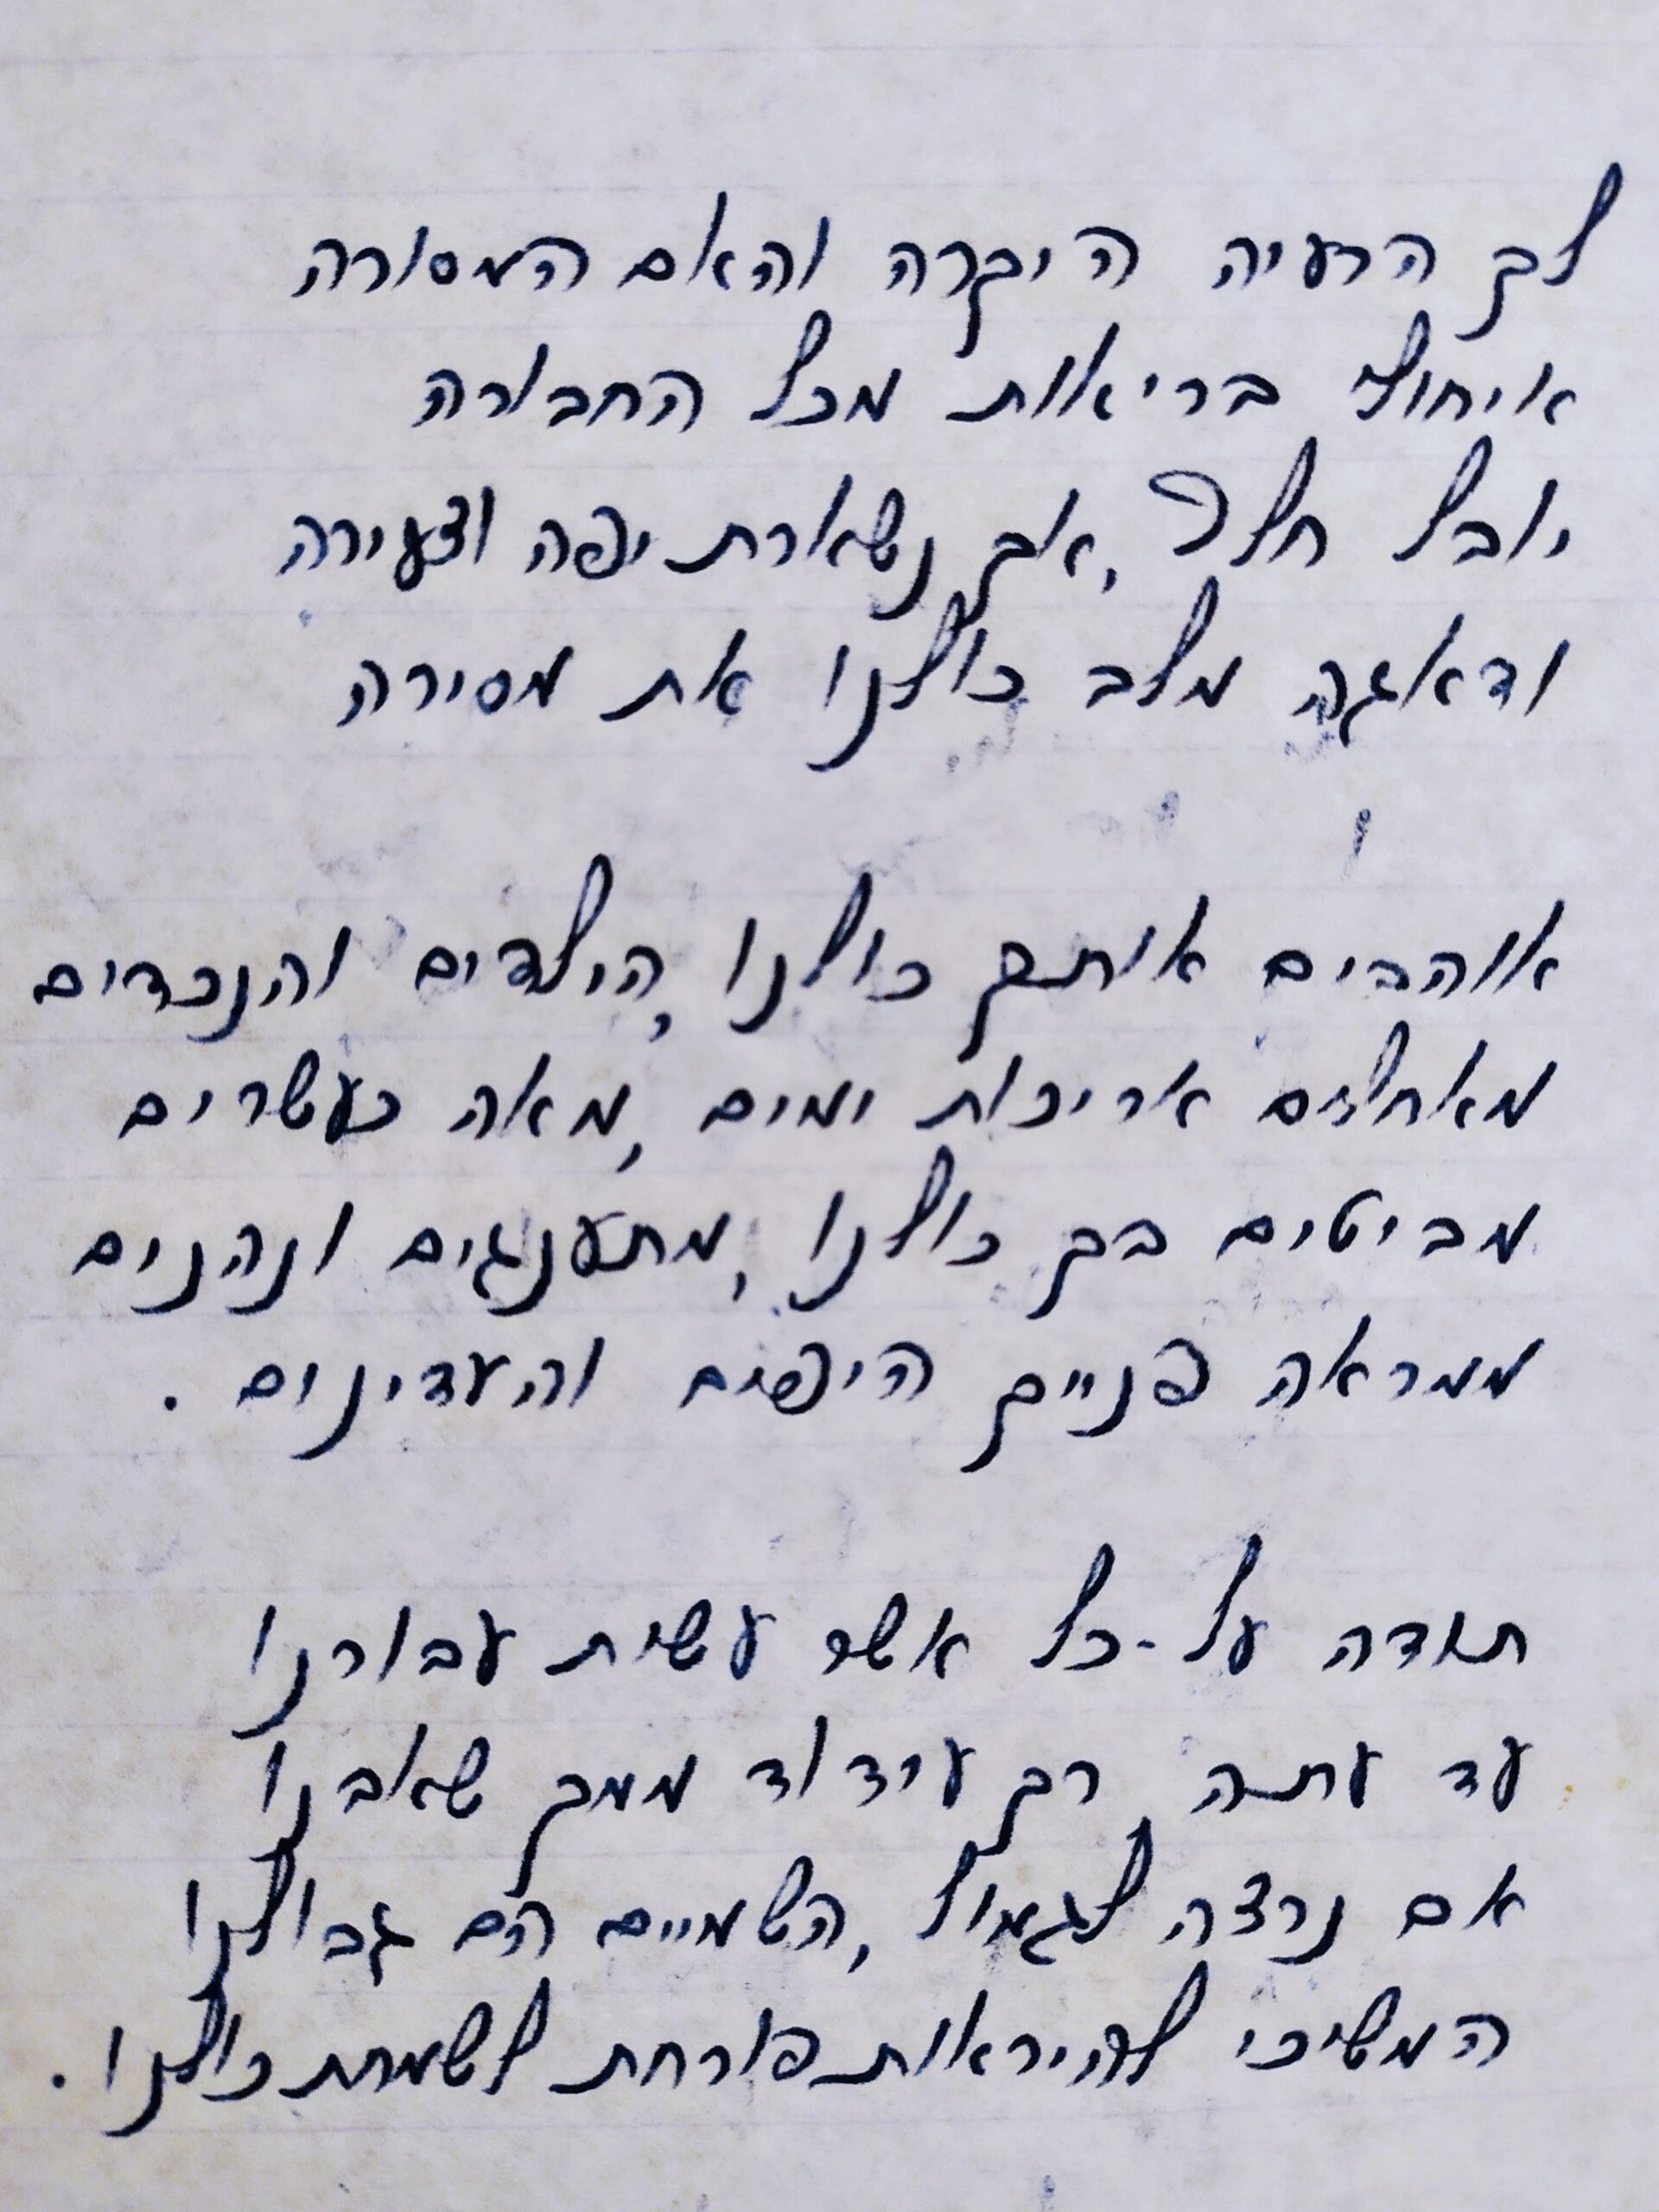 לך הרעיה היקרה והאם המסורה
איחולי בריאות מכל החבורה
יובל חלף, אך נשארת יפה וצעירה
ודאגה מלב כולנו את מסירה
אוהבים אותך כולנו, הילדים והנכדים
מאחלים אריכות ימים, מאה כעשרים
מביטים בך כולנו, מתענגים ונהנים
ממראה פנייך היפים והעדינים.
תודה על-כל אשר עשית עבורנו
עד עתה, רק עידוד ממך שאבנו
אם נרצה לגמול, השמיים הם גבולנו
המשיכי להיראות פורחת לשמחת כולנו.